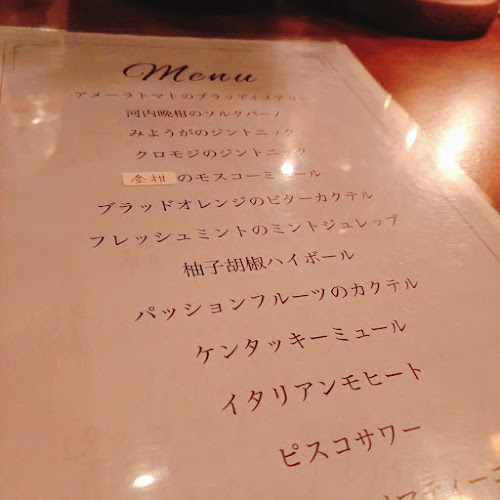 Menu
アメーラトマトのブラッディメアリー
河内晩柑のソルクバーノ
みょうがのジントニック
クロモジのジントニック
金柑のモスコーミュール
ブラッドオレンジのビターカクテル
フレッシュミントのミントジュレップ
柚子胡椒ハイボール
パッションフルーツのカクテル
ケンタッキーミュール
イタリアンモヒート
ピスコサワー